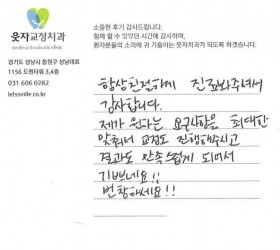 웃자교정치과
smile orthodontic clinic
경기도 성남시 중원구 성남대로
1156 도원타워 3,4층
031 606 0282
letssmile.co.kr
소중한 후기 감사드립니다.
함께 할 수 있었던 시간에 감사하며,
환자분들의 소리에 귀 기울이는 웃자치과가 되도록 하겠습니다.
항상친절하게 진료봐주셔서
감사합니다.
제가 원하는 요구사항을 최대한
맞춰서 교정도 진행해주시고
결과도 만족스럽게 되어서
기쁘네요!!
번창하세요!!